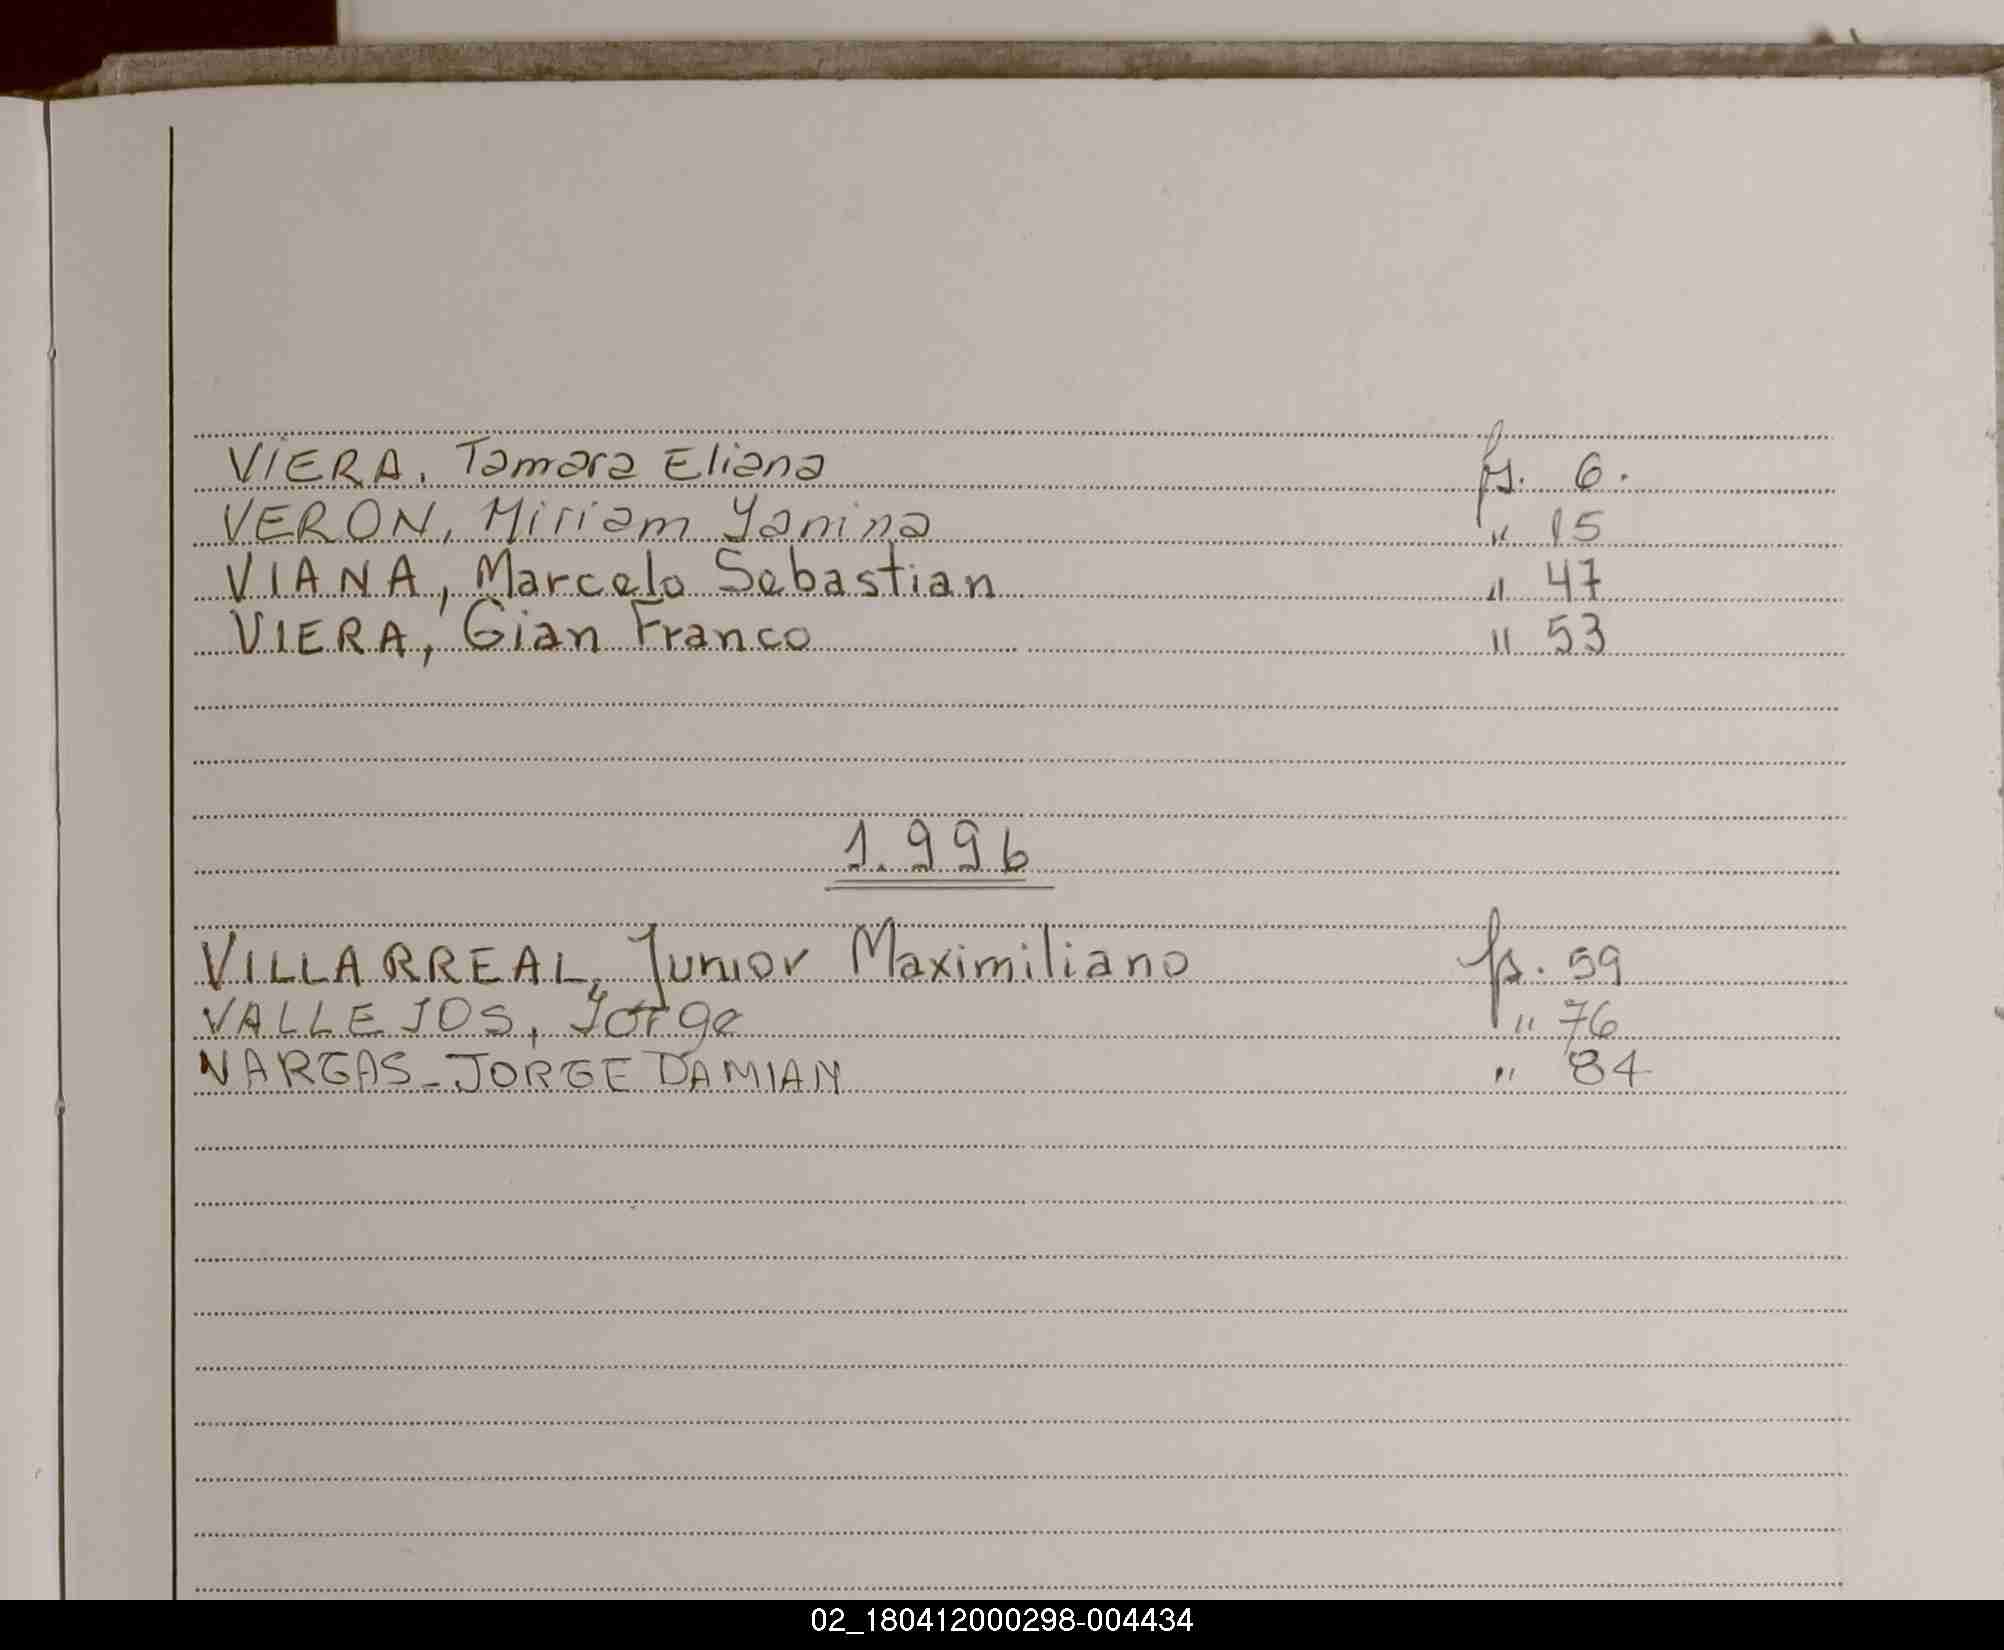 VIERA, Tamara Eliana fs. 6.
VERON, Miriam Yanina " 15
VIANA, Marcelo Sebastian " 47
VIERA, Gian Franco " 53
1.996
VILLARREAL, Junior Maximiliano fs. 59
VALLEJOS, Jorge " 76
VARGAS - JORGE DAMIAN " 84
02_180412000298-004434